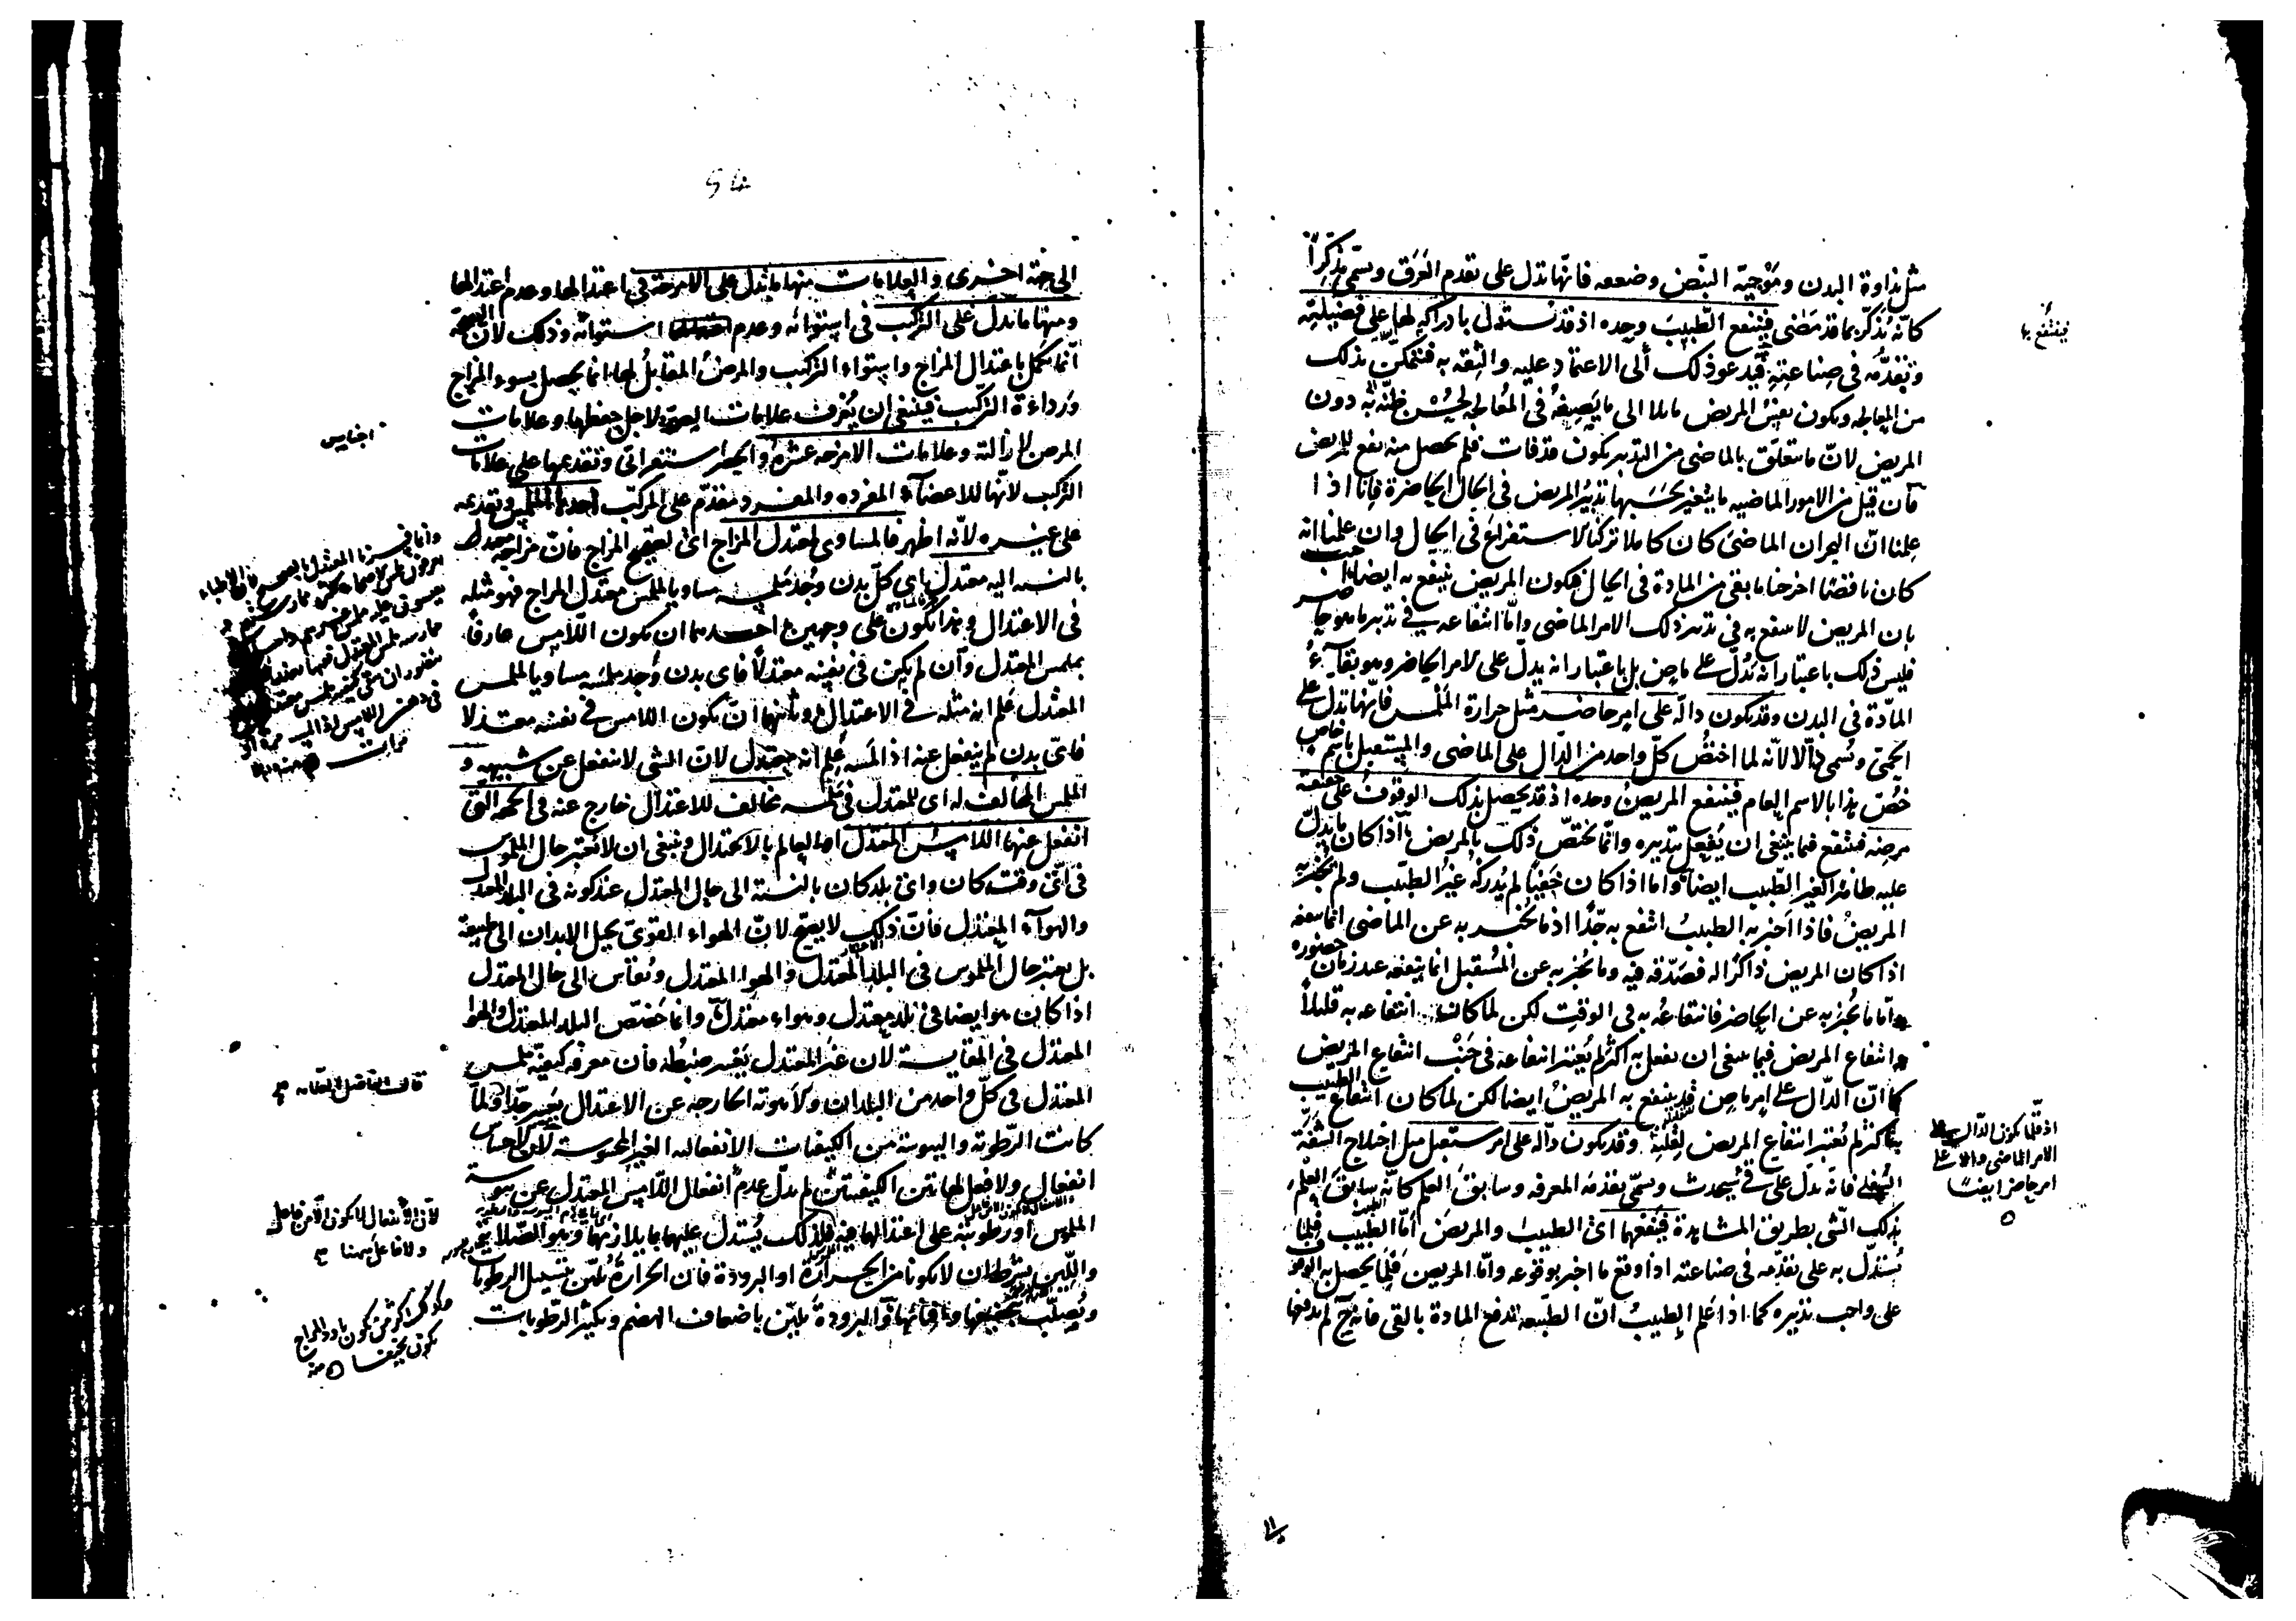 مثل نداوة البدن وموجية النبض وضعفه فانها تدل على تقدم العرق وتسمى مذكرا
كانه تذكر بما قد مضى فينتفع الطبيب وحده اذ قد يستدل بادراكه لها على فضيلته
وتقدمه فى صناعته فيدعو ذلك الى الاعتماد عليه والثقه به فيتمكن بذلك
من المعالجه ويكون المريض مايلا الى ما يصفه فى المعالجه لحسن ظنه به دون
المريض لان ما يتعلق بالماضى من التدبير يكون قد فات فلم يحصل منه نفع للمريض
فان قيل من الامور الماضيه ما يتغير بحسبها تدبير المريض فى الحال الحاضرة فانا اذا
علمنا ان البحران الماضى كان كاملا تركنا الاستفراغ فى الحال وان علمنا انه
كان ناقصا اخرجنا ما بقى من المادة فى الحال فيكون المريض ينتفع به ايضا
بان المريض لا ينتفع به فى تدبير ذلك الامر الماضى واما انتفاعه فى تدبير ما هو
فليس ذلك باعتبار انه يدل على ماض بل باعتبار انه يدل على الامر الحاضر وهو بقاء
المادة فى البدن وقد يكون دالة على امر حاضر مثل حرارة الملمس فانها تدل على
الحمى وتسمى دالا لانه لما اختص كل واحد من الدال على الماضى والمستقبل باسم خاص
خص هذا بالاسم العام فينتفع المريض وحده اذ قد يحصل بذلك الوقوف على حقيقة
مرضه فينتفع فيما ينبغى ان يفعل بتدبيره وانما يختص ذلك بالمريض اذا كان ما يدل
عليه ظاهرا لغير الطبيب ايضا واما اذا كان خفيا لم يدركه غير الطبيب ولم يخبر به
المريض فاذا اخبر به الطبيب انتفع به جدا اذ ما يخبر به عن الماضى انما ينفعه
اذا كان المريض ذاكرا له فصدقه فيه وما يخبر به عن المستقبل انما ينفعه عند زمان حضوره
واما ما يخبر به عن الحاضر فانتفاعه به فى الوقت لكن لما كان انتفاعه به قليلا
وانتفاع المريض فيما ينبغى ان يفعل به اكثر لم يعتبر انتفاعه فى جنب انتفاع المريض
كما ان الدال على امر ماض قد ينتفع به المريض ايضا لكن لما كان انتفاع الطبيب
به اكثر لم يعتبر انتفاع المريض لقلته وقد يكون دالة على امر مستقبل مثل اختلاج الشفة
السفلى فانه يدل على قئ سيحدث وتسمى تقدمة المعرفه وسابق العلم كانه سابق العلم
بذلك الشى بطريق المشاهدة فينفعهما اى الطبيب والمريض اما الطبيب فلما
يستدل به على تقدمه فى صناعته اذا وقع ما اخبر بوقوعه واما المريض فلما يحصل به الوقوف
على واجب تدبيره كما اذا علم الطبيب ان الطبيعه تدفع المادة بالقى فانه ح لم يدفعها
فينتفع بها
اذ قلما يكون الدال على
الامر الماضى دالا على
امر حاضر ايضا
الى جهة اخرى والعلامات منها ما تدل على الامزجة فى اعتدالها وعدم اعتدالها
ومنها ما تدل على التركيب فى استوائه وعدم استوائه وذلك لان الصحة
انما تكمل باعتدال المزاج واستواء التركيب والمرض المقابل لها انما يحصل بسوء المزاج
ورداءة التركيب فينبغى ان يعرف علامات الصحة لاجل حفظها وعلامات
المرض لازالته وعلامات الامزجه عشرة والحصر استقرائى وتقدمها على علامات
التركيب لانها للاعضاء المفرده والمفرد مقدم على المركب احدها الملمس وتقدمه
على غيره لانه اظهر فالمساوى لمعتدل المزاج اى لصحيح المزاج فان مزاجه معتدل
بالنسبة اليه معتدل اى كل بدن وجد ملمسه مساويا لملمس معتدل المزاج فهو مثله
فى الاعتدال وهذا يكون على وجهين احدهما ان يكون اللامس عارفا
بملمس المعتدل وان لم يكن فى نفسه معتدلا فاى بدن وجد ملمسه مساويا لملمس
المعتدل علم انه مثله فى الاعتدال وثانيهما ان يكون اللامس فى نفسه معتدلا
فاى بدن لم ينفعل عنه اذ المسه علم انه معتدل لان الشى لا ينفعل عن شبيهه و
الملمس المخالف له اى للمعتدل فى ملمسه مخالف للاعتدال خارج عنه فى الجهه التى
انفعل عنها اللامس المعتدل او العالم بالاعتدال وينبغى ان لا يعتبر حال الملموس
فى اى وقت كان واى بلد كان بالنسبة الى حال المعتدل عند كونه فى البلد المعتدل
والهواء المعتدل فان ذلك لا يصح لان الهواء القوى يحيل الابدان الى طبيعة
بل يعتبر حال الملموس فى البلد المعتدل والهوا المعتدل ويقاس الى حال المعتدل
اذا كان هو ايضا فى بلد معتدل وهواء معتدل وانما خصص البلد المعتدل والهوا
المعتدل فى المقايسة لان غير المعتدل يعسر ضبطه فان معرفه كيفية ملمس
المعتدل فى كل واحد من البلدان والاهوية الخارجه عن الاعتدال يعسر جدا ولما
كانت الرطوبة واليبوسة من الكيفيات الانفعاليه الغير المحسوسة لان الاحساس
انفعال ولا فعل لهاتين الكيفيتين لم يدل عدم انفعال اللامس المعتدل عن يبوسة
الملموس او رطوبته على اعتدالها فيه فلذلك يستدل عليهما بما يلازمهما وهو الصلابة
واللين بشرط ان لا يكونا من الحرارة او البرودة فان الحرارة تلين بتسييل الرطوبات
وتصلب بتجفيفها وافنائها والبرودة تلين باضعاف الهضم وتكثير الرطوبات
اجناس
قال الفاضل العلامه
لان الانفعال لا يكون الا من فاعل
ولا فاعل ههنا